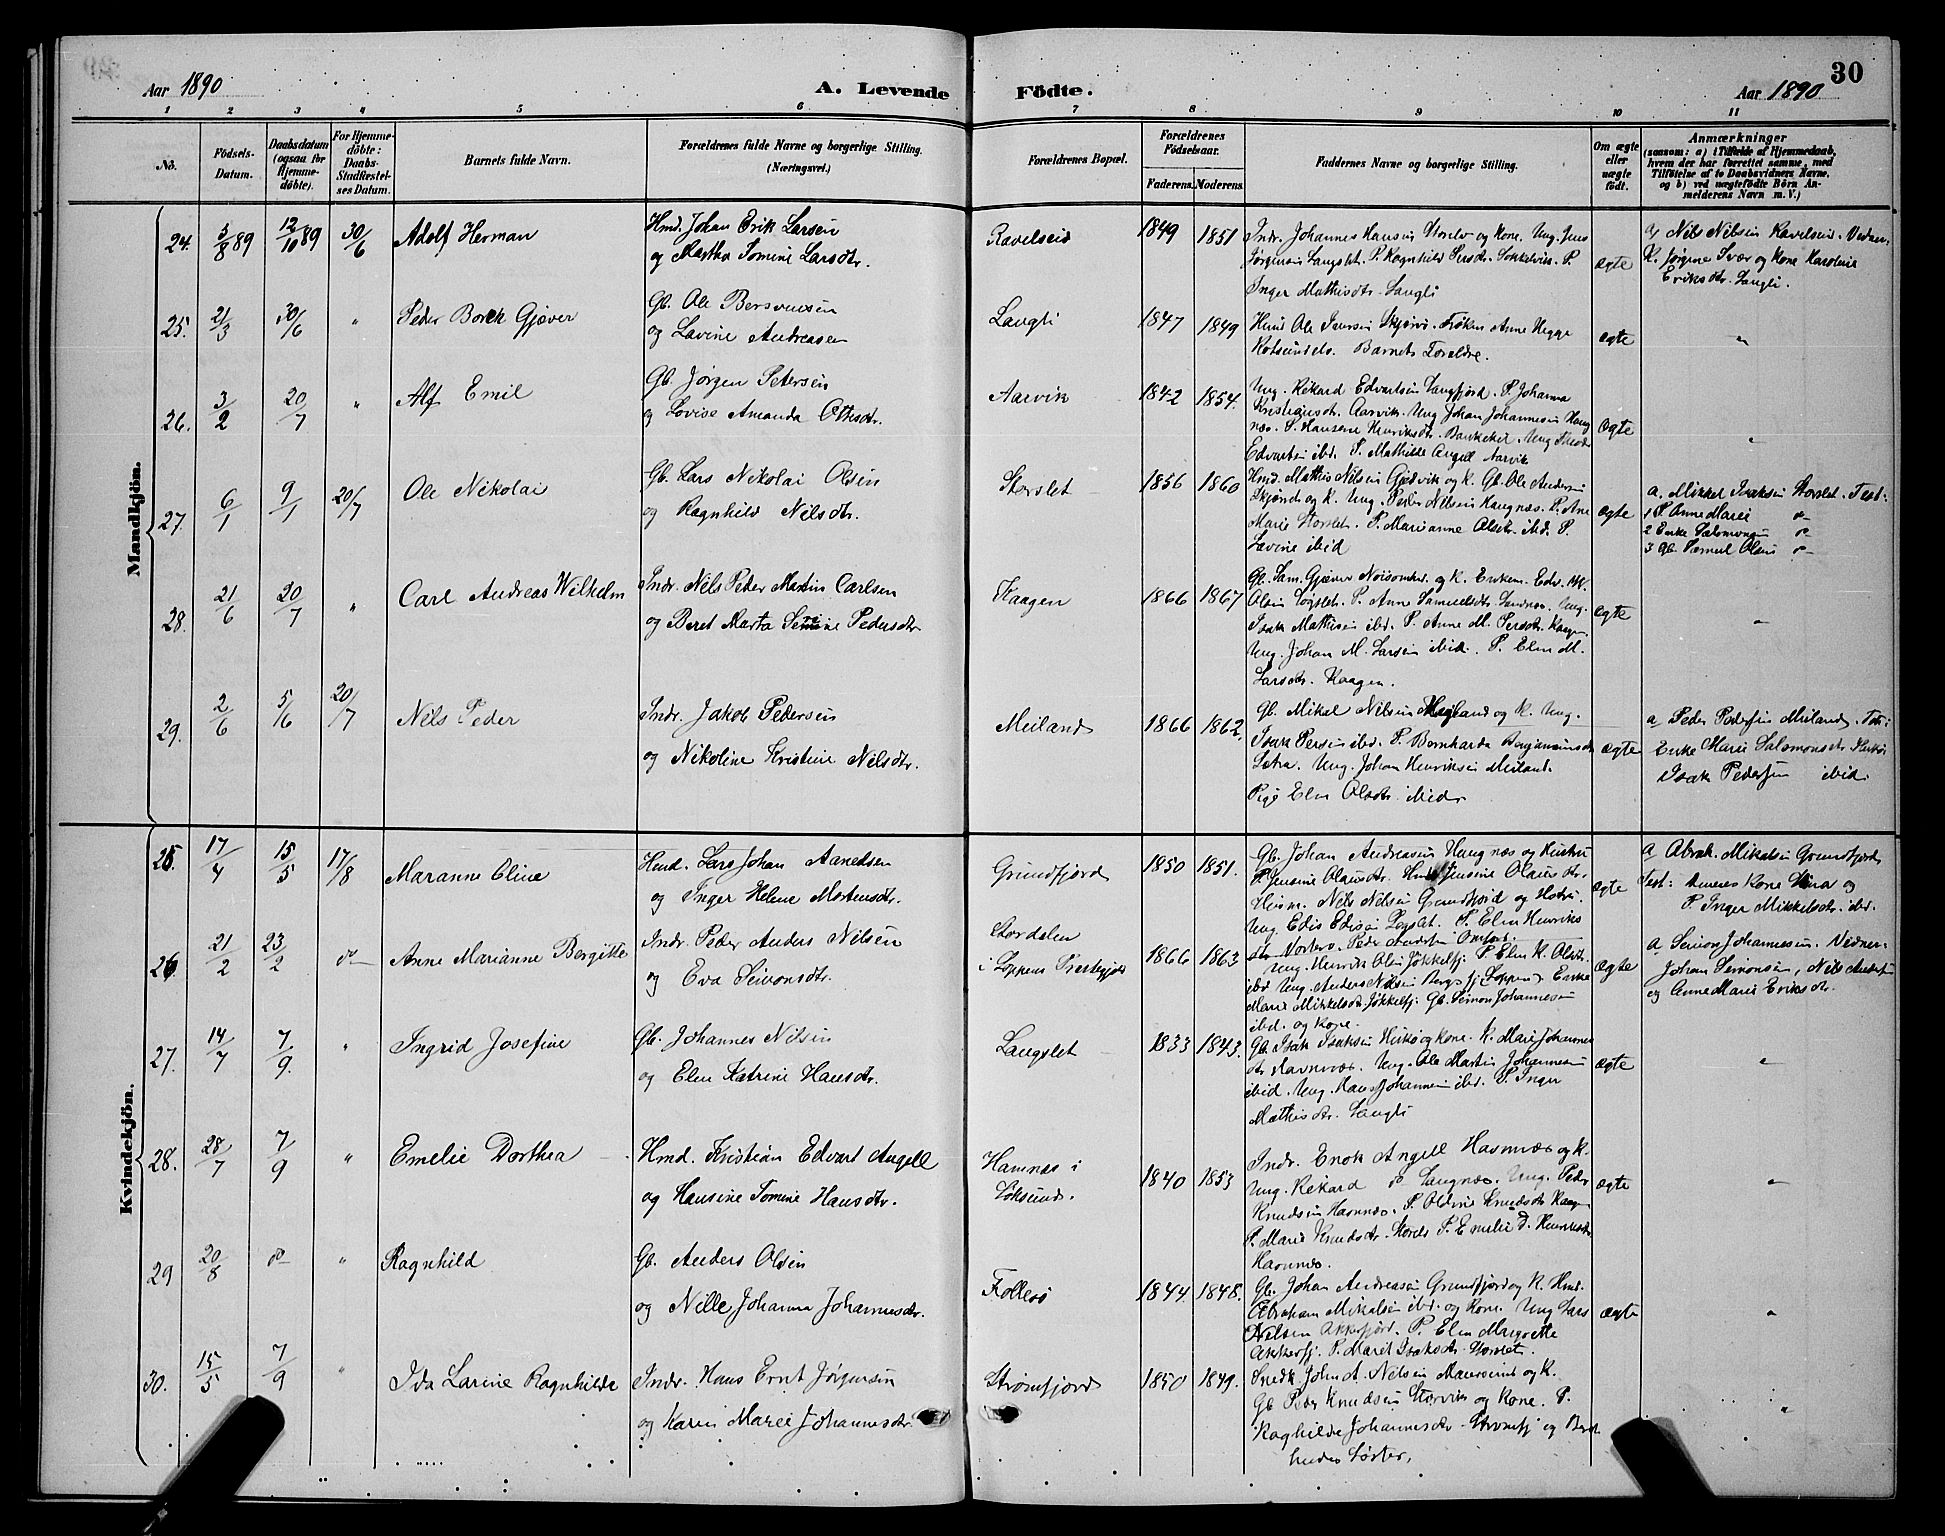 30
Aar 1890
A. Levende Födte.
Aar 1890
1 2 3 4 5 6 7 8 9 10 11
No.
Födsels-
Datum.
Daabsdatum
(ogsaa for
Hjemme-
döbte).
For Hjemme-
döbte:
Daabs-
Stadfæstel-
ses Datum.
Barnets fulde Navn.
Forældrenes fulde Navne og borgerlige Stilling.
(Næringsvei.)
Forældrenes Bopæl.
Forældrenes
Födselsaar.
Faderens. Moderens.
Faddernes Navne og borgerlige Stilling.
Om ægte
eller
uægte
födt.
Anmærkninger
(saasom: a) i Tilfælde af Hjemmedaab,
hvem der har forrettet samme, med
Tilföielse af to Daabsvidners Navne,
og b) ved uægtefödte Börn An-
melderens Navn m. V.)
Mandkjön.
24. 5/8 89 12/10 89 30/6 Adolf Herman
Hmd. Johan Erik Larsen
og Martha Tomine Larsdtr.
Ravelseid 1849 1851
Indr. Johannes Hansen Storelv og Kone. Ung. Jens
Jørgensen Langslet. P. Ragnhild Persdtr. Sokkelvik. P.
Inger Mathisdtr. Langli
ægte
a, Nils Nilsen Ravelseid. Vidner:
K. Jørgine Svær og Kone Karoline
Eriksdtr. Langli.
25. 21/3 30/6 " Peder Borch Gjæver
Gb. Ole Bersvensen
og Lavine Andreasen
Langli 1847 1849
Hmd Ole Jensen Skjervø. Frøken Anne Hegge
Rotsundelv. Barnets Forældre.
ægte "
26. 3/2 20/7 " Alf Emil
Gb. Jørgen Petersen
og Lovise Amanda Olsdtr.
Aarvik 1842 1854.
Ung. Rikard Edvartsen Langfjord. P. Johanna
Kristiansdtr. Aarvik. Ung Johan Johannesen Haug
næs. P. Hansine Henriksdtr. Bankekil. Ung Theodor
Edvartsen ibd. P. Mathilde Angell Aarvik
ægte "
27. 6/1 9/1 20/7 Ole Nikolai
Gb. Lars Nikolai Olsen
og Ragnhild Nilsdtr.
Storslet 1856 1860
Hmd. Mathis Nilsen Gjøvik og K. Gb. Ole Andersen
Skjønes og K. Ung. Peder Nilsen Haugnæs. P. Ane
Marie Storslet. P. Marianne Olsdtr. ibd. P.
Lavine ibid
ægte
a. Mikkel Isaksen Storslet. Test:
1 P. Anne Marie do
2 Enke Salomonsen do
3 Gb. Samuel Olsen do
28. 21/6 20/7 " Carl Andreas Wilhelm
Indr. Nils Peder Martin Carlsen
og Beret Marta Semine Pedersdtr.
Kaagen 1866 1867
Gb. Sam. Gjæver og K. Enkem. Edv.
Olsen Løgslet. P. Anne Samuelsdtr. Sandnæs. Ung.
Isak Mathisen ibd. P. Anne M. Persdtr. Kaagen.
Ung. Johan M. Larsen ibid. P. Elen M.
Larsdtr. Kaagen.
ægte "
29. 2/6 5/6 20/7 Nils Peder
Indr. Jakob Pedersen
og Nikoline Kristine Nilsdtr.
Meiland 1866 1862.
Gb. Mikal Nilsen Meiland og K. Ung.
Isak Persen ibd. P. Bernharda Benjaminsdtr
Sætra. Ung. Johan Henriksen Meiland.
Pige Elen Olsdtr. ibid.
ægte
a Peder Pedersen Meiland. Test:
Enke Marie Salomonsdtr.
Isak Pedersen ibid.
Kvindekjön.
25 17/4 15/5 17/8 Maranne Eline
Hmd. Lars Johan Arnedsen
og Inger Helene Mortensdtr.
Grundfjord 1850 1851.
Gb. Johan Andreasen Haugnæs og Hustru
P. Jensine Olausdtr. Hmd Jensine Olausdtr.
Heim. Nils Nilsen Grundfjord og Hustru.
Ung Edis Edisen Løgslet. P. Elen Henriks
dtr Nordero. Peder Andersen
ægte
a Abrah. Mikalsen Grundfjord
Test: dennes Kone Nina og
P. Inger Mikkelsdtr. ibd.
26 21/2 23/2 do Anne Marianne Bergitte
Indr. Peder Anders Nilsen
og Eva Simonsdtr.
Stordalen
i Loppens Præstegjeld 1866 1863
Ung. Henrik Olsen Jøkkelfj. P. Elen K. Olsdtr.
ibd. Ung. Anders Nilsen Bergsfj. Loppen. Enke
Marie Mikkelsdtr Jøkkelfj. Gb. Simon Johannesen
ibd. og Kone.
ægte
a Simon Johannesen. Vidner:
Johan Simonsen, Nils Andersen
og Anne Marie Eriksdtr.
27. 14/7 7/9. " Ingrid Josefine
Gb. Johannes Nilsen
og Elen Katrine Hansdtr.
Langslet 1833 1843.
Gb. Isak Isaksen og Kone. K. Marie Johannes
dtr Havnnæs. Ung. Ole Martin Johannesen
ibid. Ung. Hans Johannesen ibd. P. Inger
Mathisdtr. Langli
ægte "
28. 28/7 7/9 " Emelie Dorthea
Hmd. Kristian Edvart Angell
og Hansine Tomine Hansdtr.
Hamnæs i
Loksund. 1840 1853
Indr. Enok Angell Havnnæs og K.
Ung. Rikard do Langnæs. Ung. Peder
Knudsen Havnnæs. P. Oldine Knudsdtr Kaagen
P. Marie Knudsdtr. Storslet P. Emelie D. Henriksdtr
Havnnæs.
ægte "
29 20/8 do " Ragnhild
Gb. Anders Olsen
og Nille Johanna Johannesdtr.
Follesø 1844 1848.
Gb. Johan Andreasen Grundfjord og K. Hmd.
Abraham Mikalsen ibd. og Kone. Ung Lars
Nielsen Akkerfjord. P. Elen Margrette
Akkerfj. P. Maret Isaksdtr. Storslet.
ægte "
30. 15/5 7/9 " Ida Larine Ragnhilde
Indr. Hans Ernt Jørgensen
og Karen Marie Johannesdtr.
Strømfjord 1850 1849.
Snedk John A. Nilsen Maursund og K.
Gb Peder Knudsen Storvik og Kone. P.
Raghilde Johannesdtr. Strømfj og Barnets
hendes Søster.
"